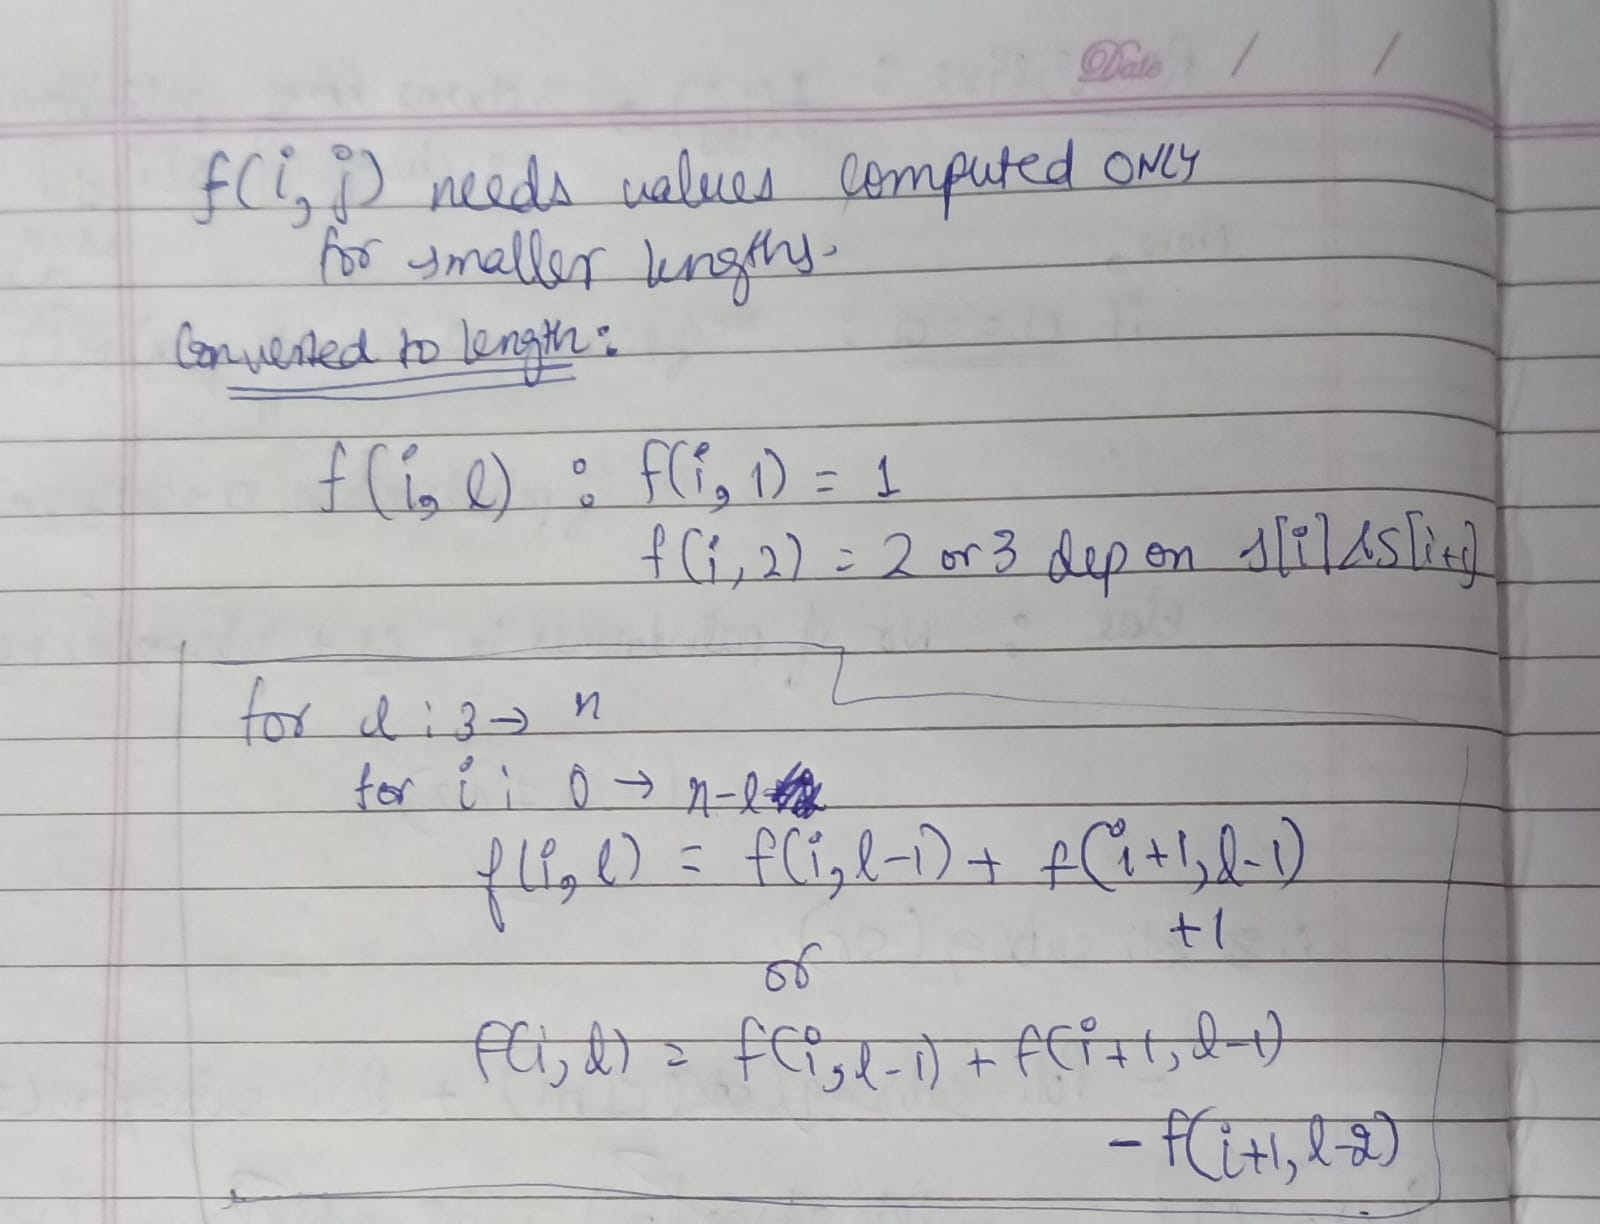 Date / /
f(i, j) needs values computed ONLY
for smaller lengths.
Converted to length:
f(i, l) : f(i, 1) = 1
f(i, 2) = 2 or 3 dep on s[i] & S[i+1]
for l : 3 → n
for i : 0 → n-l
f(i, l) = f(i, l-1) + f(i+1, l-1)
+1
or
f(i, l) = f(i, l-1) + f(i+1, l-1)
- f(i+1, l-2)